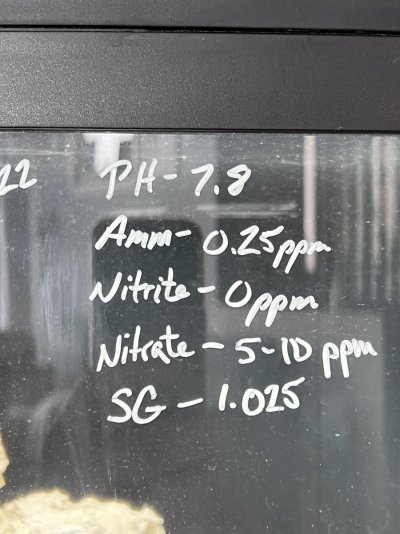 22 PH- 7.8
Amm- 0.25ppm
Nitrite - 0ppm
Nitrate - 5-10 ppm
SG - 1.025